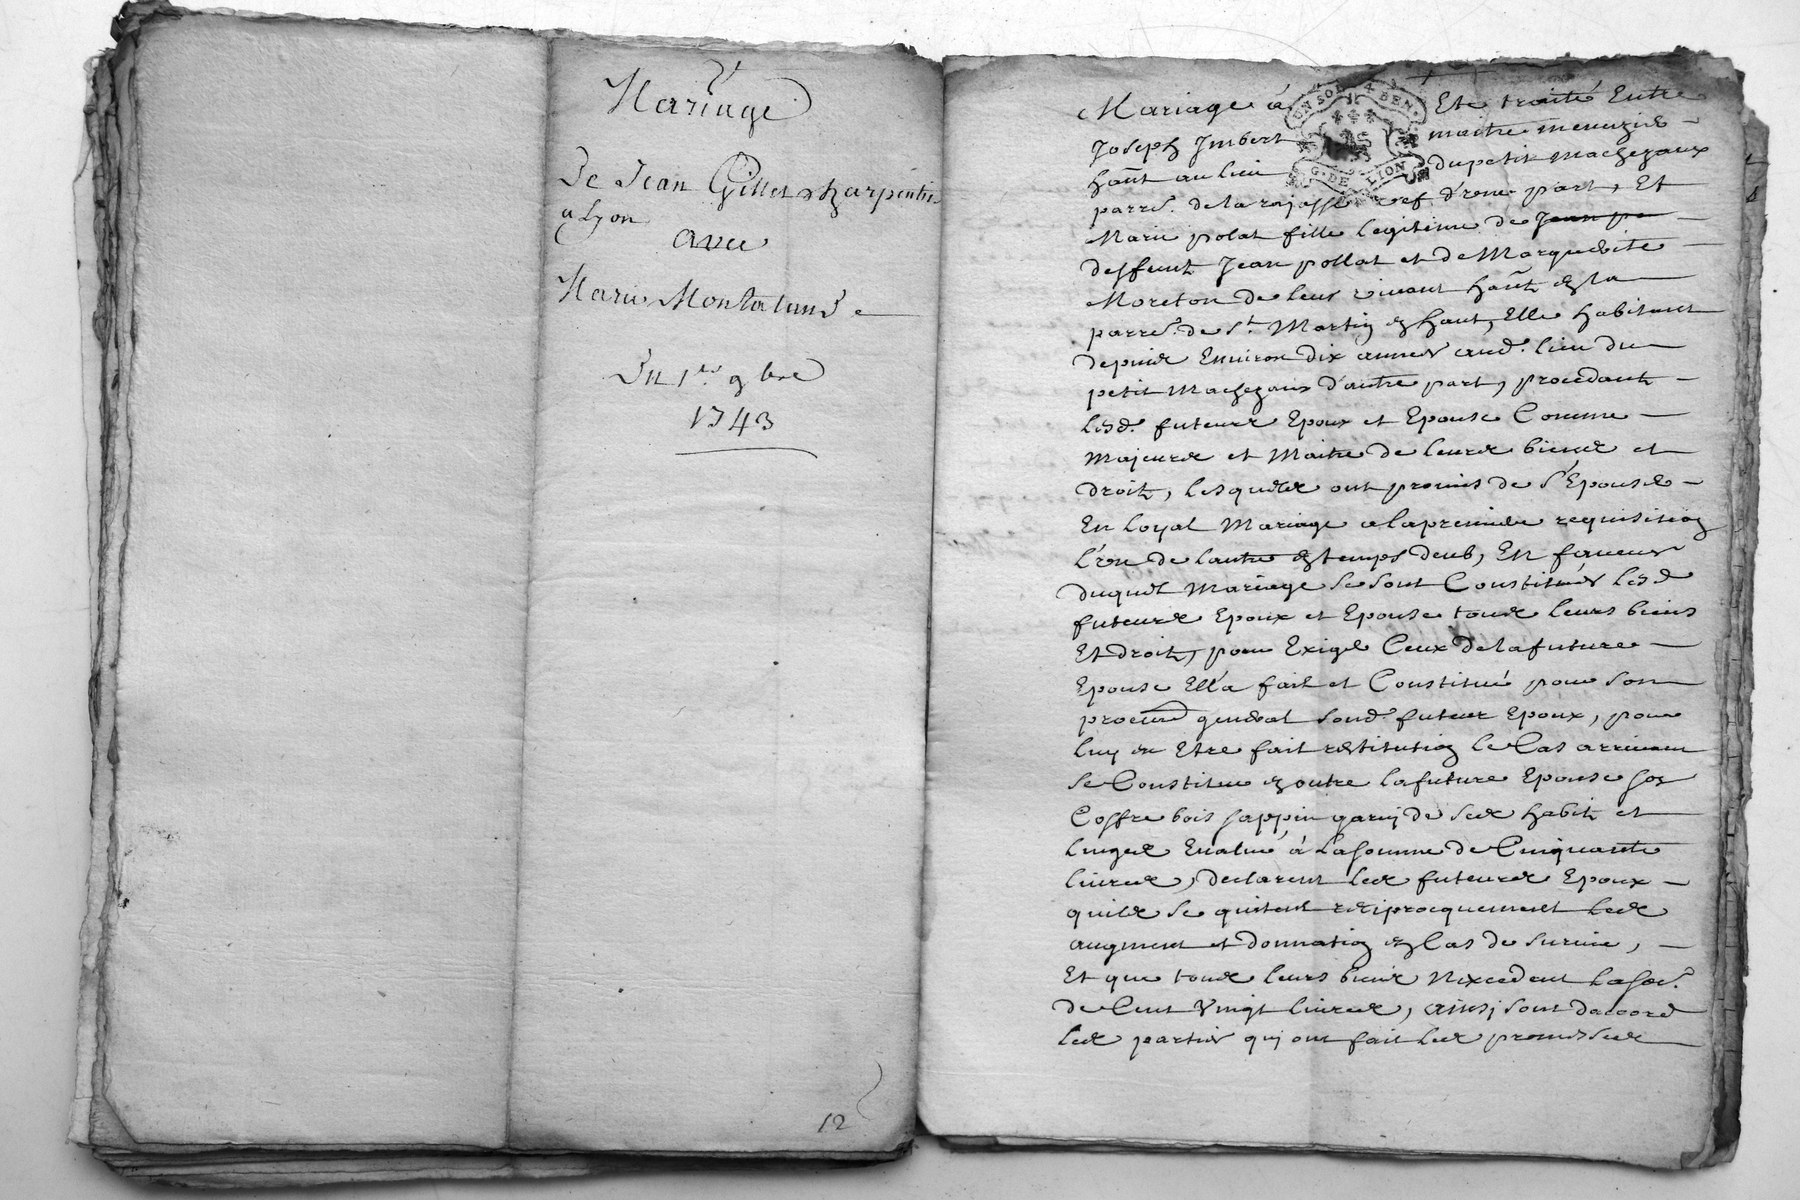 Mariage
De Jean Gillet charpentier
a Lyon
avec
Marie Montaland
Du 1er 9bre
1743
12
Mariage á Eté traité Entre
Joseph Imbert maitre menuzier
hañt au lieu du petit Machezaux
parrs. de la rajasse d'vne part, Et
Marie polat fille legitime de Jean po
deffunt Jean pollat et de Marguerite
Moreton de leur vivant hañt en la
parrs. de st. Martin en haut, Elle habitant
depuis Environ dix années aud. lieu du
petit Machezaux d'autre part, procedant
lesd. futeurs Epoux et Epouse Comme
Majeurs et Maitre de leurs biens et
droits, lesquels ont promis de s'Epouser
En loyal Mariage a la premiere requisition
l'vn de lautre en temps deub, En faveur
duquel Mariage se sont Constitués lesd
futeurs Epoux et Epouse tous leurs biens
Et droits, pour Exiger Ceux de la future
Epouse Ell'a fait et Constitué pour son
procur general sond. futeur Epoux, pour
luy en Etre fait restitution le Cas arrivant
se Constitue en outre la future Epouse son
Coffre bois sappin garnj de ses habits et
linges Evalué á La somme de Cinquante
livres, declarent les futeurs Epoux
quils se quitent reciprocquement les
augment et donnation en Cas de survie,
Et que tous leurs biens Nexcedent la so.
de Cent Vingt livres, ainsj sont daccord
les parties quj ont fait les promesses
EN SOL 4 DEN.
G. DE LION